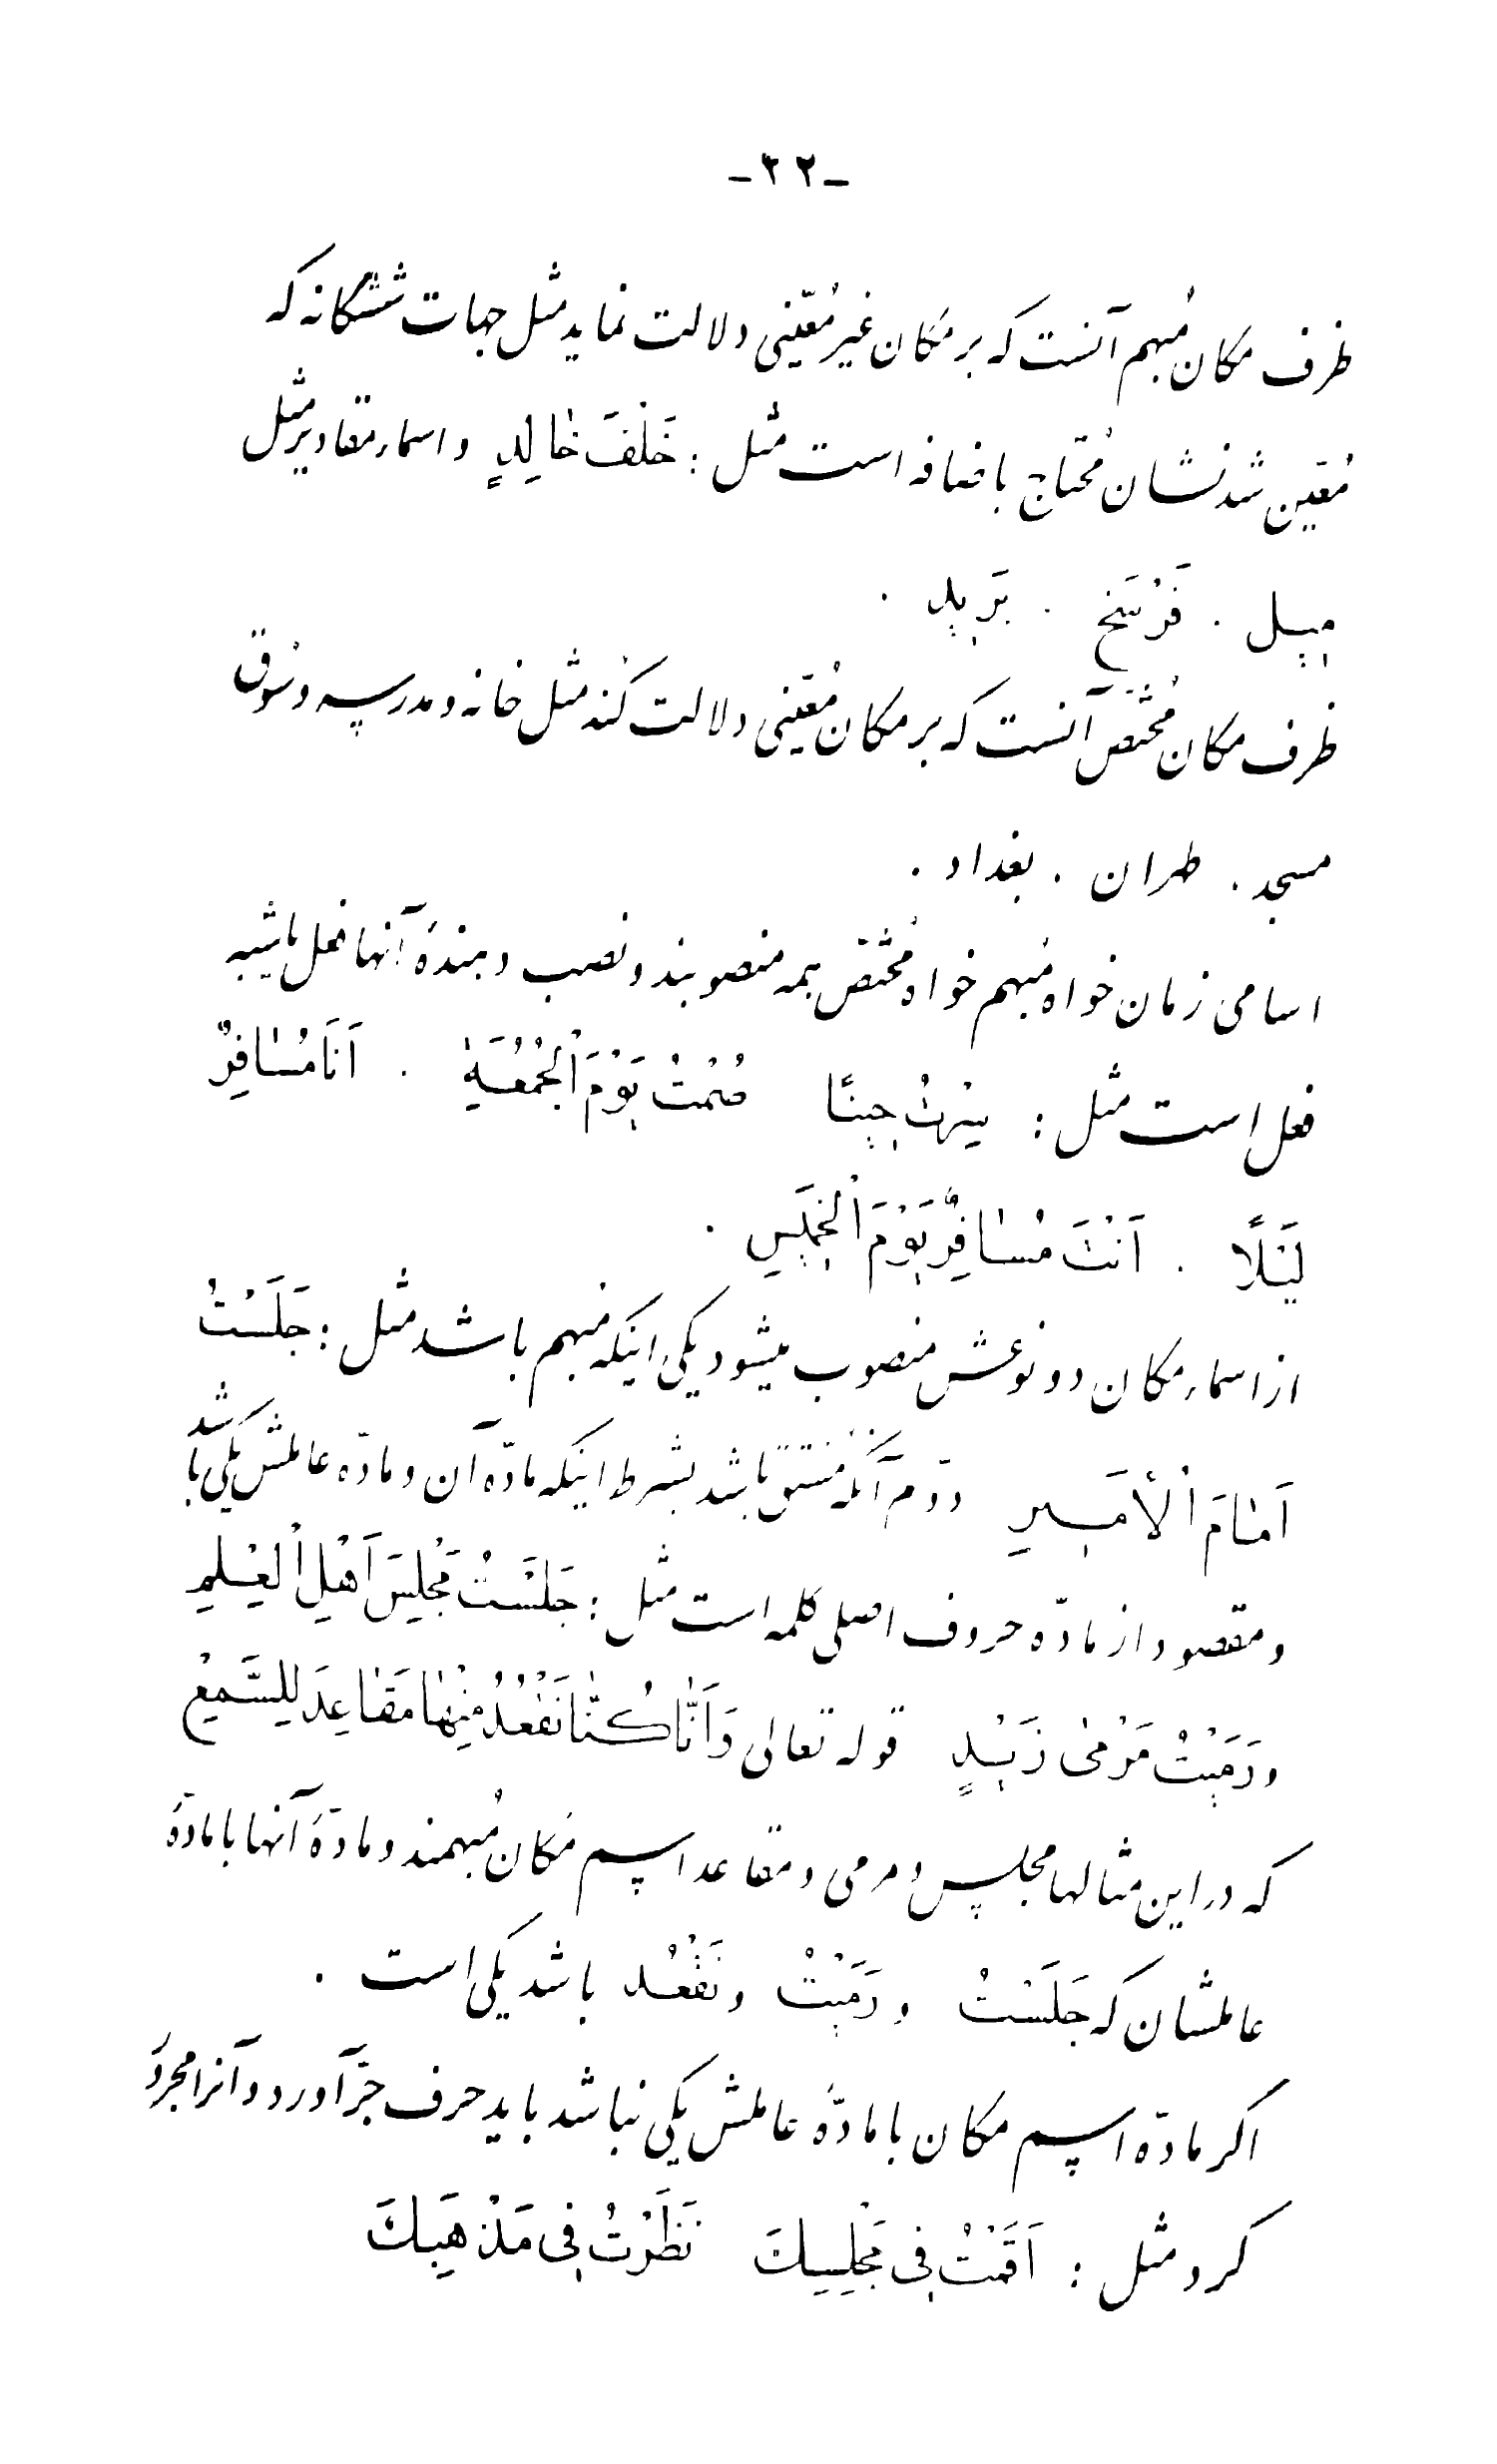 -۲۲-
ظرف مکان مُبهم آنست که بر مکان غیر مُعّینی دلالت نماید مثل جهات ششگانه که
مُعّین شدنشان مُحتاج باضافه است مثل : خَلْفَ خٰالِدٍ و اسماء مقادیر مثل
مِیل . فَرْسَخ . بَرِید .
ظرف مکان مُختَصّ آنست که بر مکان مُعّینی دلالت کُند مثل خانه و مدرسه و سُوق
مسجد . طهران . بغداد .
اسامی زمان خواه مُبهم خواه مُختَصّ همه منصوبند و نصب دهندهٔ آنها فعل یا شبیه
فعل است مثل : سِرْتُ حِینًا صُمْتُ یَوْمَ الْجُمُعَةِ . اَنَا مُسٰافِرٌ
لَیْلًا . اَنْتَ مُسٰافِرٌ یَوْمَ الْخَمِیسِ .
از اسماء مکان دو نوعش منصوب میشود یکی اینکه مُبهم باشد مثل : جَلَسْتُ
اَمٰامَ الْأَمِیرِ دوّم آنکه مُشتق باشد بشرط اینکه مادّه آن و مادّه عاملش یکی باشد
و مقصود از مادّه حروف اصلی کلمه است مثل : جَلَسْتُ مَجْلِسَ اَهْلِ الْعِلْمِ
و رَمَیْتُ مَرْمیٰ زَیْدٍ قوله تعالی وَ اَنّٰا کُنّٰا نَقْعُدُ مِنْهٰا مَقٰاعِدَ لِلسَّمْعِ
که در این مثالها مجلس و مرمی و مقاعد اسم مَکان مُبهمند و مادّهٔ آنها با مادّهٔ
عاملشان که جَلَسْتُ و رَمَیْتُ و نَقْعُد باشد یکی است .
اکر مادّه اسم مکان با مادّهٔ عاملش یکی نباشد باید حرف جرّ آورد و آنرا مجرُد
کرد مثل : اَقَمْتُ فِی مَجْلِسِكَ نَظَرْتُ فِی مَذْهَبِكَ